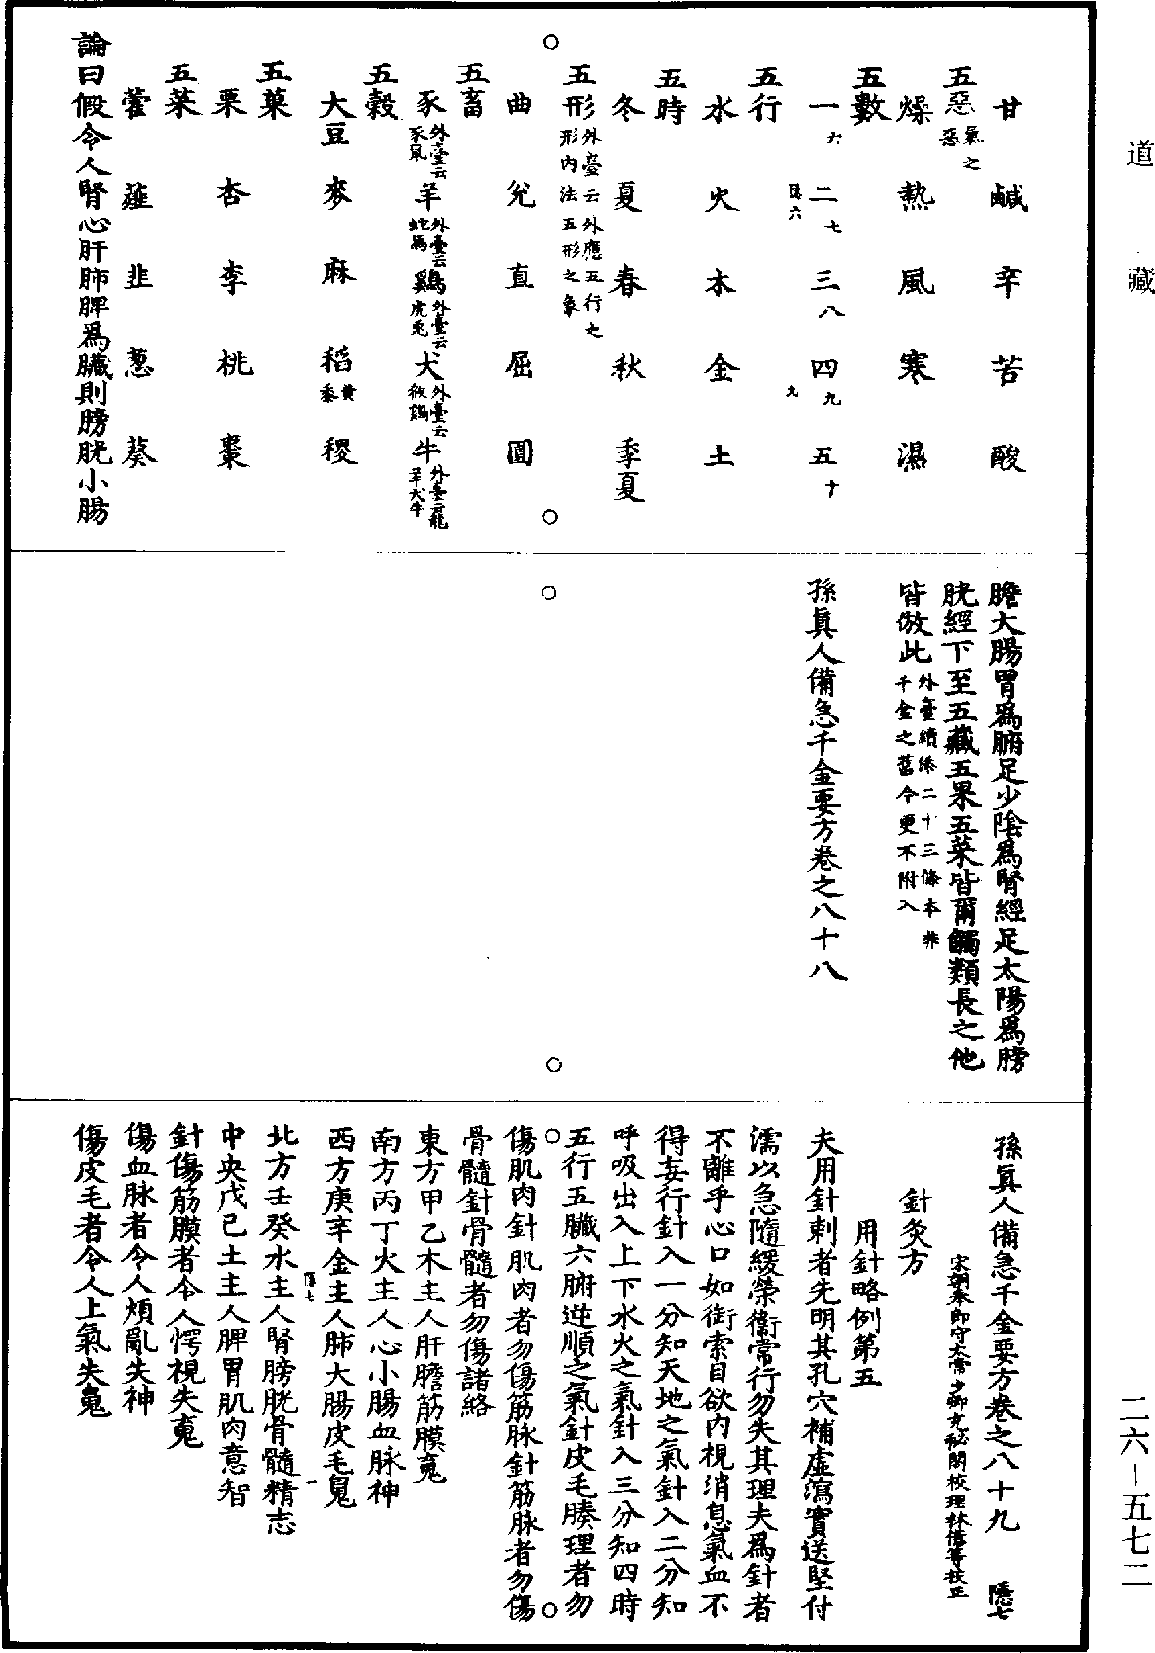 道藏
甘　鹹　辛　苦　酸
五惡氣之惡
燥　熱　風　寒　濕
五數
一六　二七　三八　四九　五十
隱六　九
五行
水　火　木　金　土
五時
冬　夏　春　秋　季夏
五形外臺云外應五行之形內法五形之象
曲　兊　直　屈　圓
五畜
豕外臺云豕鼠　羊外臺云蛇馬　雞外臺云虎兎　犬外臺云猴鷄　牛外臺云龍羊犬牛
五穀
大豆　麥　麻　稻黃黍　稷
五菓
栗　杏　李　桃　棗
五菜
藿　薤　韭　葱　葵
論曰假令人腎心肝肺脾爲臟則膀胱小腸
膽大腸胃爲腑足少陰爲腎經足太陽爲膀
胱經下至五藏五果五菜皆爾觸類長之他
皆倣此外臺續添二十三條本非千金之舊今更不附入
孫眞人備急千金要方卷之八十八
孫眞人備急千金要方卷之八十九　隱七
宋朝奉郎守太常少卿充秘閣校理林億等校正
針灸方
用針略例第五
夫用針刺者先明其孔穴補虛瀉實送堅付
濡以急隨緩榮衞常行勿失其理夫爲針者
不離乎心口如銜索目欲內視消息氣血不
得妄行針入一分知天地之氣針入二分知
呼吸出入上下水火之氣針入三分知四時
五行五臟六腑逆順之氣針皮毛腠理者勿
傷肌肉針肌肉者勿傷筋脉針筋脉者勿傷
骨髓針骨髓者勿傷諸絡
東方甲乙木主人肝膽筋膜䰟
南方丙丁火主人心小腸血脉神
西方庚辛金主人肺大腸皮毛魄
隱七　一
北方壬癸水主人腎膀胱骨髓精志
中央戊己土主人脾胃肌肉意智
針傷筋膜者令人愕視失䰟
傷血脉者令人煩亂失神
傷皮毛者令人上氣失魄
二六—五七二